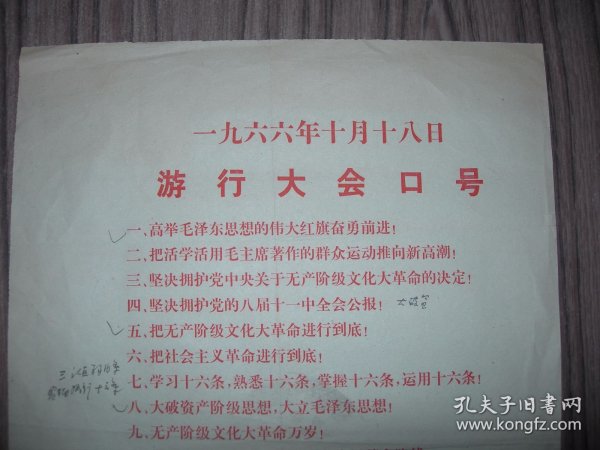 一九六六年十月十八日
游行大会口号
一、高举毛泽东思想的伟大红旗奋勇前进!
二、把活学活用毛主席著作的群众运动推向新高潮!
三、坚决拥护党中央关于无产阶级文化大革命的决定!
四、坚决拥护党的八届十一中全会公报!
五、把无产阶级文化大革命进行到底!
六、把社会主义革命进行到底!
七、学习十六条,熟悉十六条,掌握十六条,运用十六条!
八、大破资产阶级思想,大立毛泽东思想!
九、无产阶级文化大革命万岁!
孔夫子旧书网
www.kongfz.com